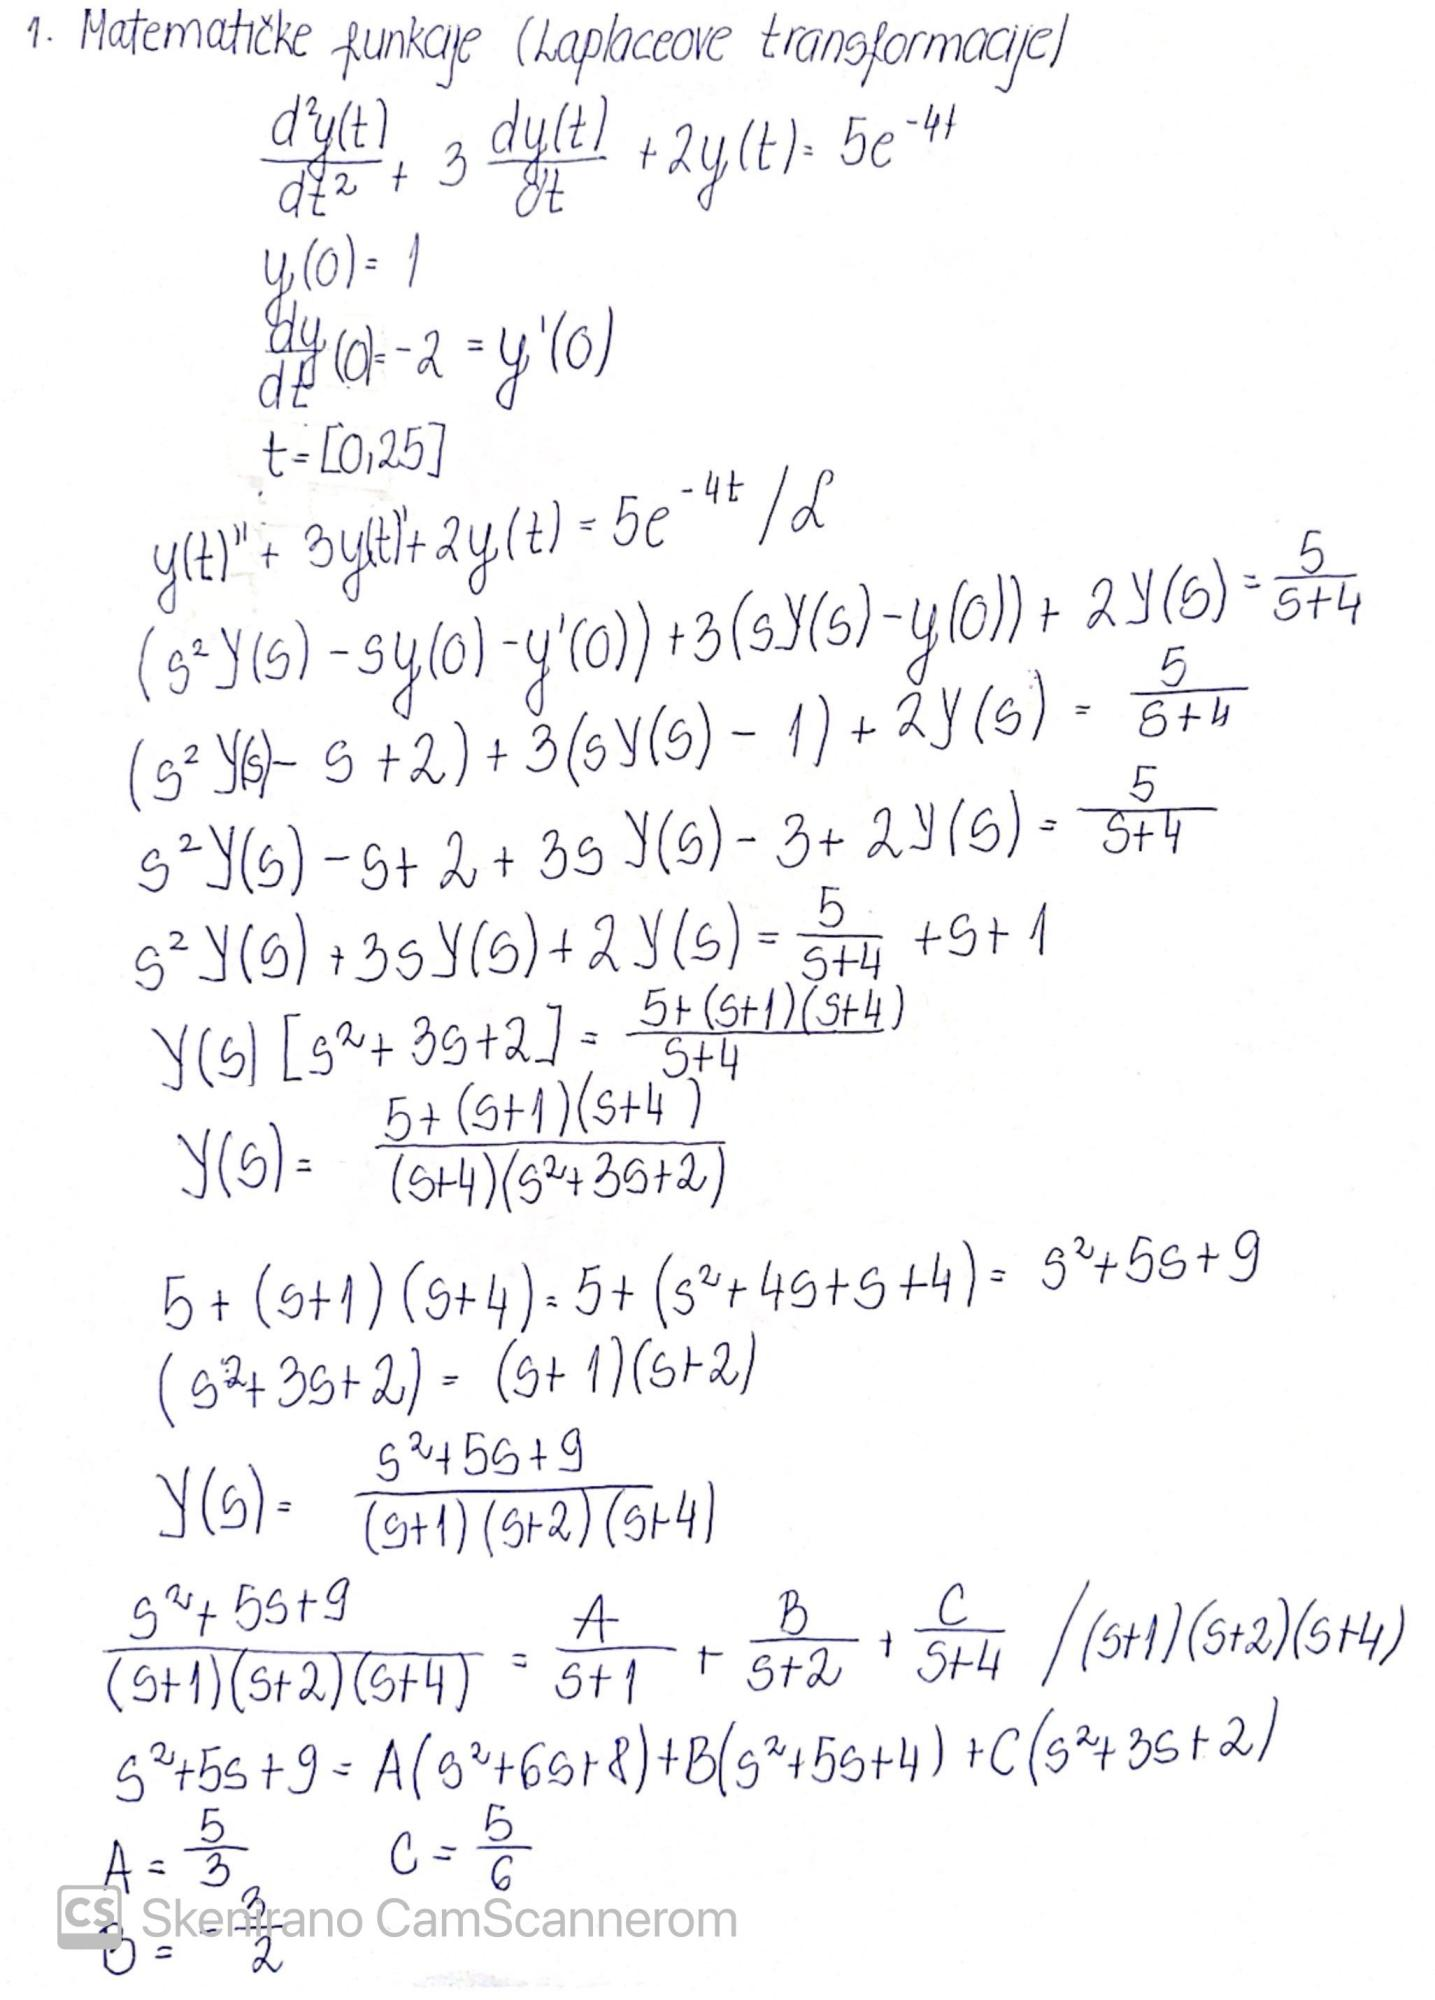 1. Matematičke funkcije (Laplaceove transformacije)
d²y(t)/dt² + 3 dy(t)/dt + 2y(t) = 5e^-4t
y(0) = 1
dy/dt (0) = -2 = y'(0)
t = [0,25]
y(t)'' + 3y(t)' + 2y(t) = 5e^-4t /ℒ
(s²Y(s) - sy(0) - y'(0)) + 3(sY(s) - y(0)) + 2Y(s) = 5/(s+4)
(s²Y(s) - s + 2) + 3(sY(s) - 1) + 2Y(s) = 5/(s+4)
s²Y(s) - s + 2 + 3sY(s) - 3 + 2Y(s) = 5/(s+4)
s²Y(s) + 3sY(s) + 2Y(s) = 5/(s+4) + s + 1
Y(s) [s² + 3s + 2] = (5+(s+1)(s+4))/(s+4)
Y(s) = (5+(s+1)(s+4))/((s+4)(s²+3s+2))
5 + (s+1)(s+4) = 5 + (s²+4s+s+4) = s²+5s+9
(s²+3s+2) = (s+1)(s+2)
Y(s) = (s²+5s+9)/((s+1)(s+2)(s+4))
(s²+5s+9)/((s+1)(s+2)(s+4)) = A/(s+1) + B/(s+2) + C/(s+4) /(s+1)(s+2)(s+4)
s²+5s+9 = A(s²+6s+8)+B(s²+5s+4)+C(s²+3s+2)
A = 5/3 C = 5/6
B = -3/2
CS Skenirano CamScannerom